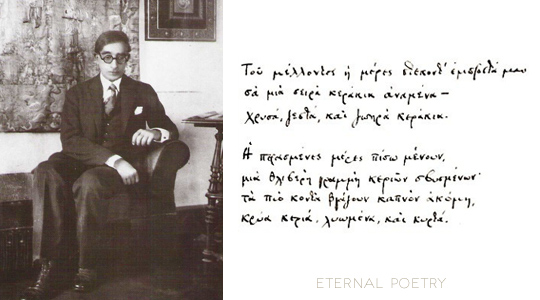 Τοῦ μέλλοντος ἡ μέρες στέκοντ' ἐμπροστά μας
σὰ μιὰ σειρὰ κεράκια ἀναμένα —
χρυσά, ζεστά, καὶ ζωηρὰ κεράκια.
Ἡ περασμένες μέρες πίσω μένουν,
μιὰ θλιβερὴ γραμμὴ κεριῶν σβυσμένων·
τὰ πιὸ κοντὰ βγάζουν καπνὸν ἀκόμη,
κρύα κεριά, λυωμένα, καὶ κυρτά.
ETERNAL POETRY